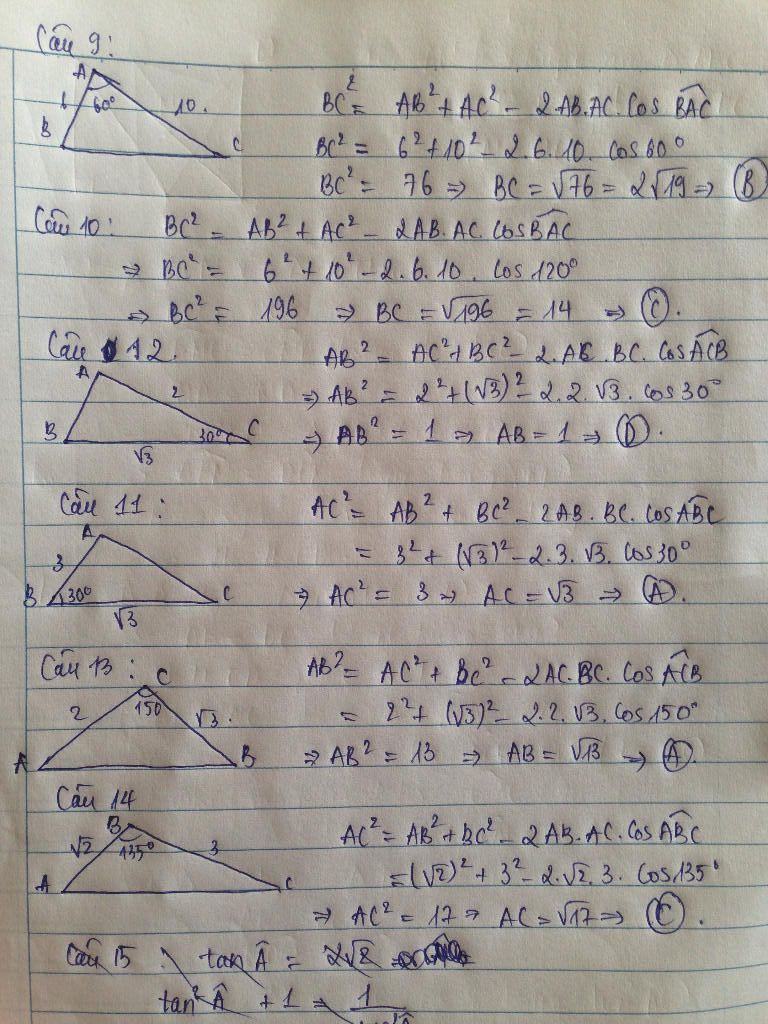 Câu 9:
A
6 60° 10.
B C
BC² = AB² + AC² - 2.AB.AC. Cos BAC
BC² = 6² + 10² - 2.6.10. Cos 60°
BC² = 76 => BC = √76 = 2√19 => (B)
Câu 10: BC² = AB² + AC² - 2AB.AC. Cos BAC
=> BC² = 6² + 10² - 2.6.10. Cos 120°
=> BC² = 196 => BC = √196 = 14 => (C).
Câu 12.
A
2
B 30° C
√3
AB² = AC² + BC² - 2.AC.BC. Cos ACB
=> AB² = 2² + (√3)² - 2.2.√3. Cos 30°
=> AB² = 1 => AB = 1 => (D).
Câu 11:
A
3
B 30° C
√3
AC² = AB² + BC² - 2AB.BC. Cos ABC
= 3² + (√3)² - 2.3.√3. Cos 30°
=> AC² = 3 => AC = √3 => (A).
Câu 13:
C
2 150 √3.
A B
AB² = AC² + BC² - 2AC.BC. Cos ACB
= 2² + (√3)² - 2.2.√3. Cos 150°
=> AB² = 13 => AB = √13 => (A).
Câu 14
B
√2 135° 3
A C
AC² = AB² + BC² - 2AB.AC. Cos ABC
= (√2)² + 3² - 2.√2.3. Cos 135°
=> AC² = 17 => AC = √17 => (C).
Câu 15: tan Â = 2√2
tan² Â + 1 = 1